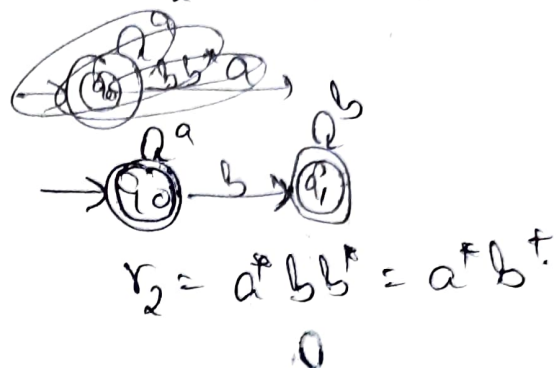 a
q₀ bb* a
a b
q₀ b q₁
r₂ = a* b b* = a* b⁺.
0